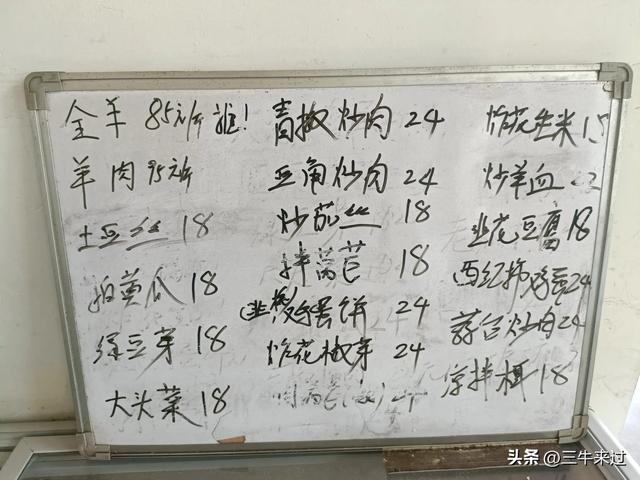 全羊 85元/斤 起!
羊肉 95元/斤
土豆丝 18
拍黄瓜 18
绿豆芽 18
大头菜 18
青椒炒肉 24
豆角炒肉 24
炒茄丝 18
拌莴苣 18
韭菜鸡蛋饼 24
炸花椒芽 24
炸花生米 15
炒羊血
韭花豆腐 18
西红柿鸡蛋 24
蒜台炒肉 24
18
头条 @三牛来过